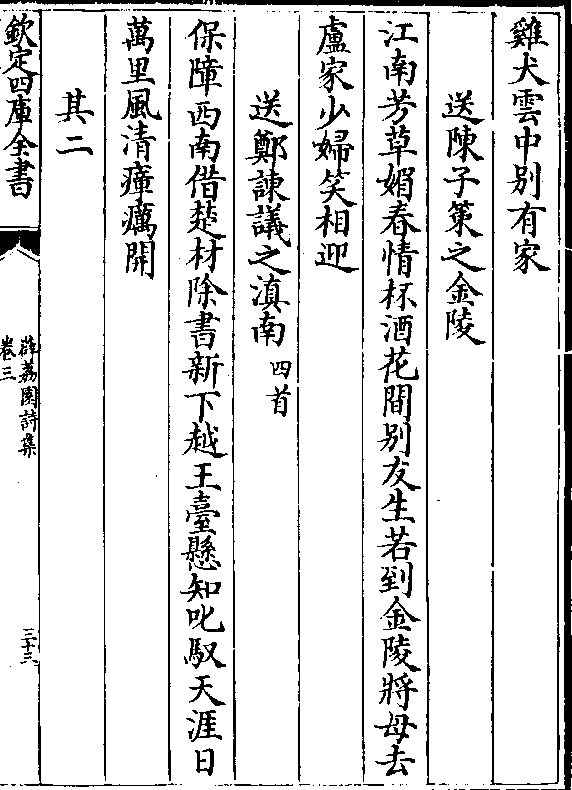 雞犬雲中别有家
送陳子䇿之金陵
江南芳草媚春情杯酒花間别友生若到金陵將母去
盧家少婦笑相迎
送鄭諫議之滇南 四首
保障西南借楚材除書新下越王臺懸知叱馭天涯日
萬里風清瘴癘開
其二
欽定四庫全書
薜荔園詩集
卷三
三十三